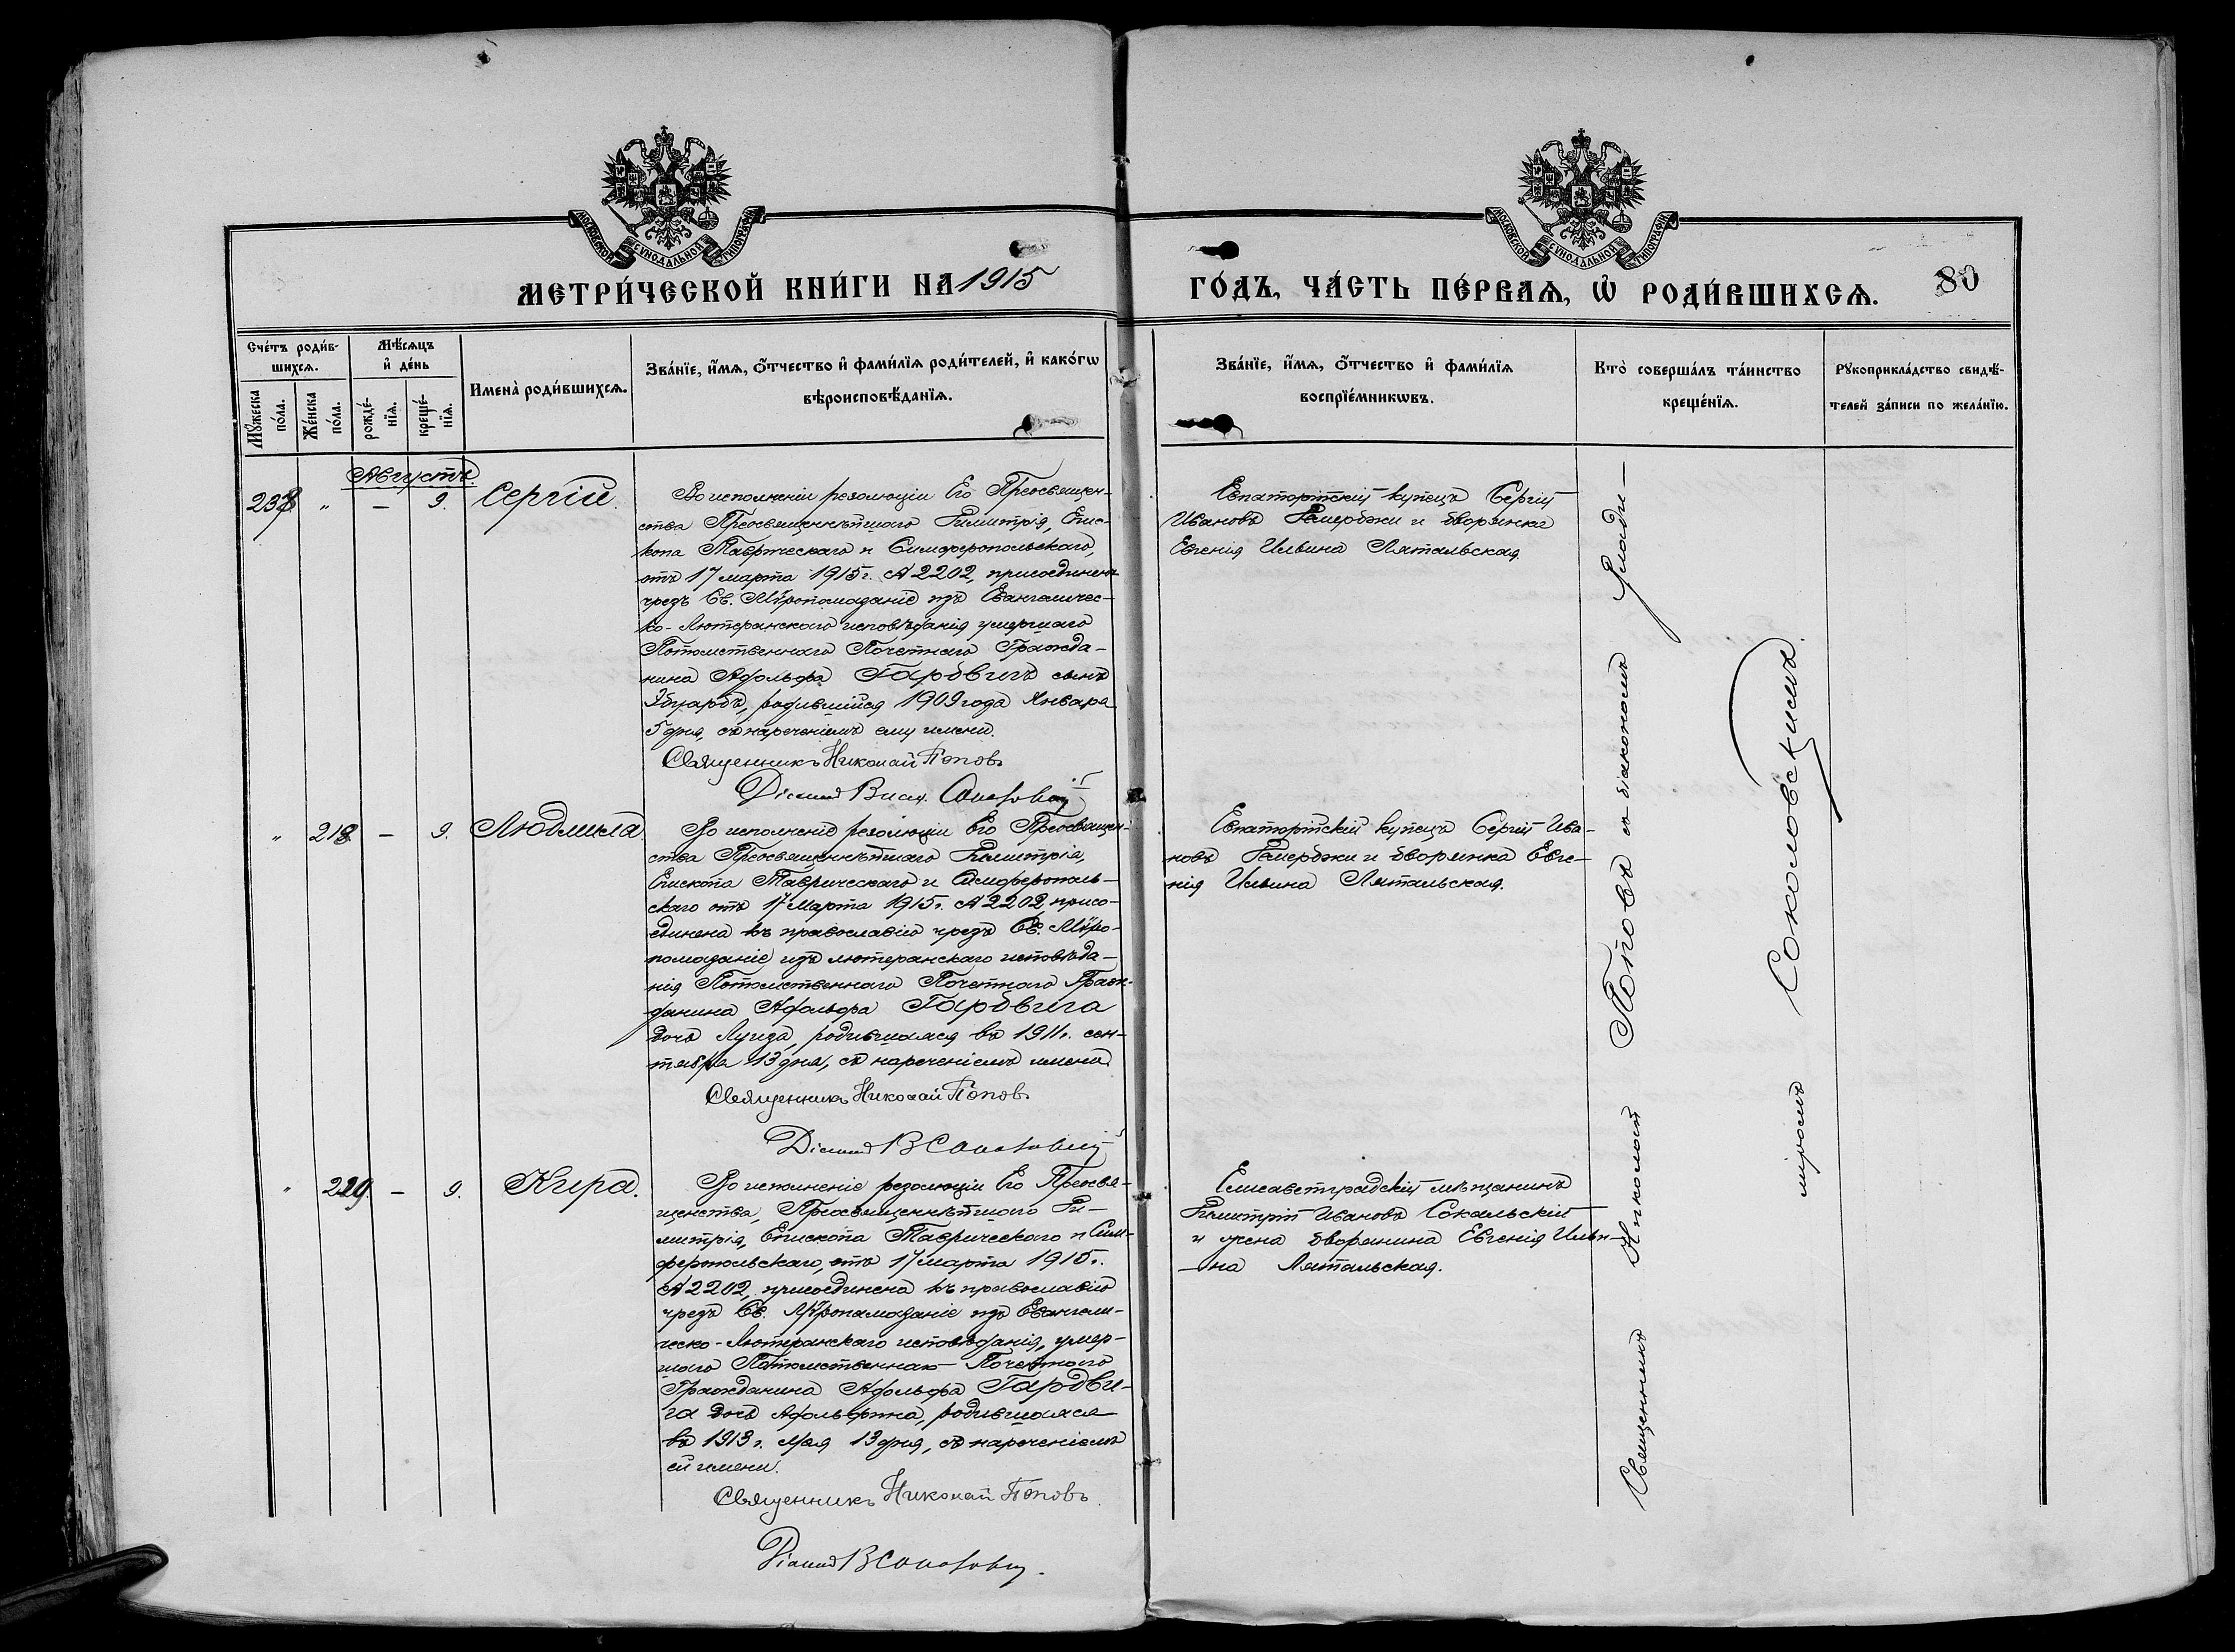 МОСКОВСКОЙ СѴНОДАЛЬНОЙ ТИПОГРАФІИ
МОСКОВСКОЙ СѴНОДАЛЬНОЙ ТИПОГРАФІИ
МЕТРИ́ЧЕСКОЙ КНИ́ГИ НА 1915
ГО́ДЪ, ЧА́СТЬ ПЕ́РВАѦ, Ѡ҆ РОДИ́ВШИХСѦ.
80
Сче́тъ роди́в-
шихсѧ.
Мꙋ́жеска
по́ла.
Же́нска
по́ла.
Мѣ́сѧцъ
и҆ де́нь
рожде́-
нїѧ.
креще́-
нїѧ.
Имена̀ роди́вшихсѧ.
Зва́нїе, и҆́мѧ, ѻ҆́тчество и҆ фами́лїѧ роди́телей, и҆ како́гѡ
вѣроисповѣ́данїѧ.
Зва́нїе, и҆́мѧ, ѻ҆́тчество и҆ фами́лїѧ
воспрїе́мникѡвъ.
Кто̀ соверша́лъ та́инство
креще́нїѧ.
Рꙋкоприкла́дство свидѣ́-
телей за́писи по жела́нїю.
Августъ.
238. " — 9. Сергій.
Во исполненіи резолюціи Его Преосвящен-
ства Преосвященнѣйшаго Димитрія, Епис-
копа Таврическаго и Симферопольскаго,
отъ 17 марта 1915 г. № 2202, присоединенъ
чрезъ Св. Мѵропомазаніе изъ Евангеличес-
ко-Лютеранскаго исповѣданія умершаго
Потомственнаго Почетнаго Гражда-
нина Адольфа Гардвигъ сынъ
Эдуардъ, родившійся 1909 года Января
5 дня, съ нареченіемъ ему имени.
Священникъ Николай Поповъ
Евпаторійскій купецъ Сергій
Ивановъ Гемерджи и дворянка
Евгенія Ильина Лятальская.
" 218 — 9. Людмила
Во исполненіе резолюціи Его Преосвящен-
ства Преосвященнѣйшаго Димитрія,
Епископа Таврическаго и Симферополь-
скаго отъ 17 Марта 1915 г. № 2202 присо-
единена къ православію чрезъ Св. Мѵро-
помазаніе изъ лютеранскаго исповѣда-
нія Потомственнаго Почетнаго Граж-
данина Адольфа Гардвига
дочь Луиза, родившаяся въ 1911 г. сен-
тября 13 дня, съ нареченіемъ имени
Священникъ Николай Поповъ
Евпаторійскій купецъ Сергій Ива-
новъ Гемерджи и дворянка Евге-
нія Ильина Лятальская.
" 219. — 9. Кира.
Во исполненіе резолюціи Его Преосвя-
щенства, Преосвященнѣйшаго Ди-
митрія, Епископа Таврическаго и Сим-
феропольскаго, отъ 17 марта 1915 г.
№ 2202, присоединена къ православію
чрезъ Св. Мѵропомазаніе изъ Евангели-
ческо-Лютеранскаго исповѣданія, умер-
шаго Потомственнаго Почетнаго
Гражданина Адольфа Гардви-
га дочь Адольфина, родившаяся
въ 1913 г. Мая 13 дня, съ нареченіемъ
ей имени.
Священникъ Николай Поповъ.
Елисаветградскій мѣщанинъ
Димитрій Ивановъ Сокальскій
и жена дворянина Евгенія Ильи-
на Лятальская.
Священникъ Николай Поповъ съ діакономъ Влади-
міромъ Соколовскимъ.